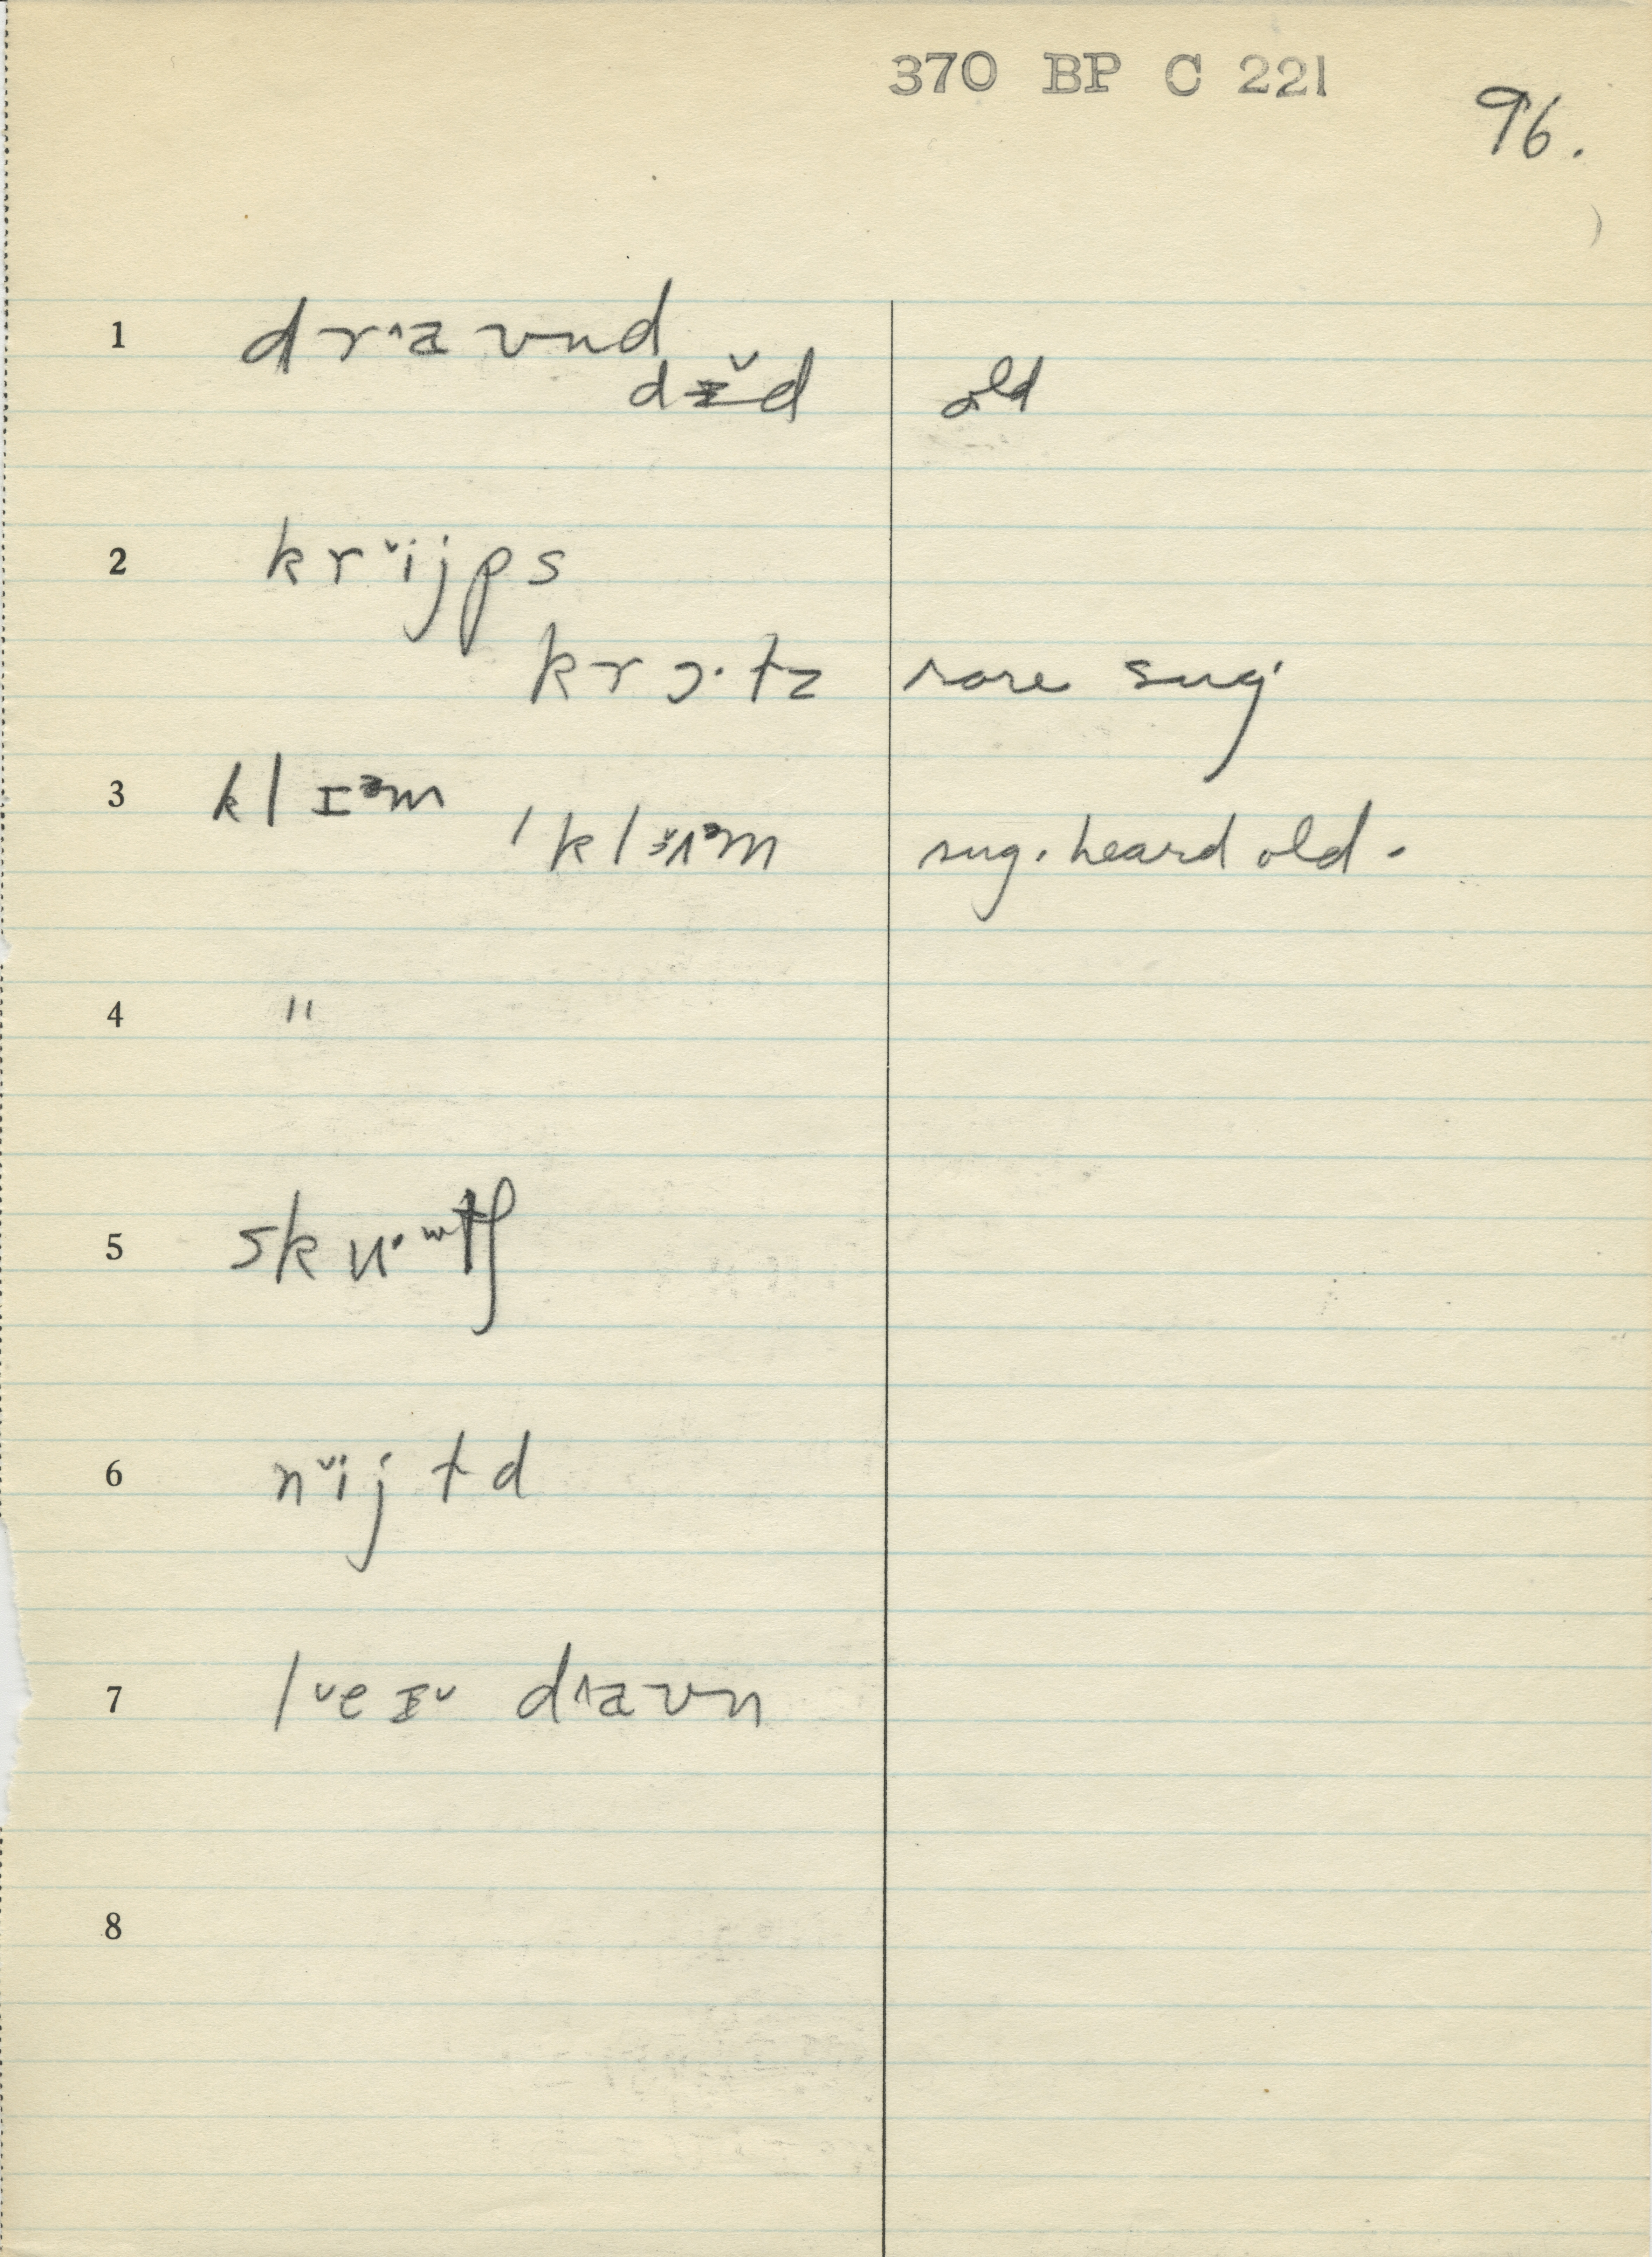 370 BP C 221
96.
1 drˆaʊnd
dɪ̆d old
2 krˇijps
krɔ·tz rare sug.
3 klɪᵊm
ˈklɜˇɪᵊm sug. heard old.
4 "
5 skʊ·ʷtʃ
6 nˇijtd
7 lˇeɪˇ dˆaʊn
8